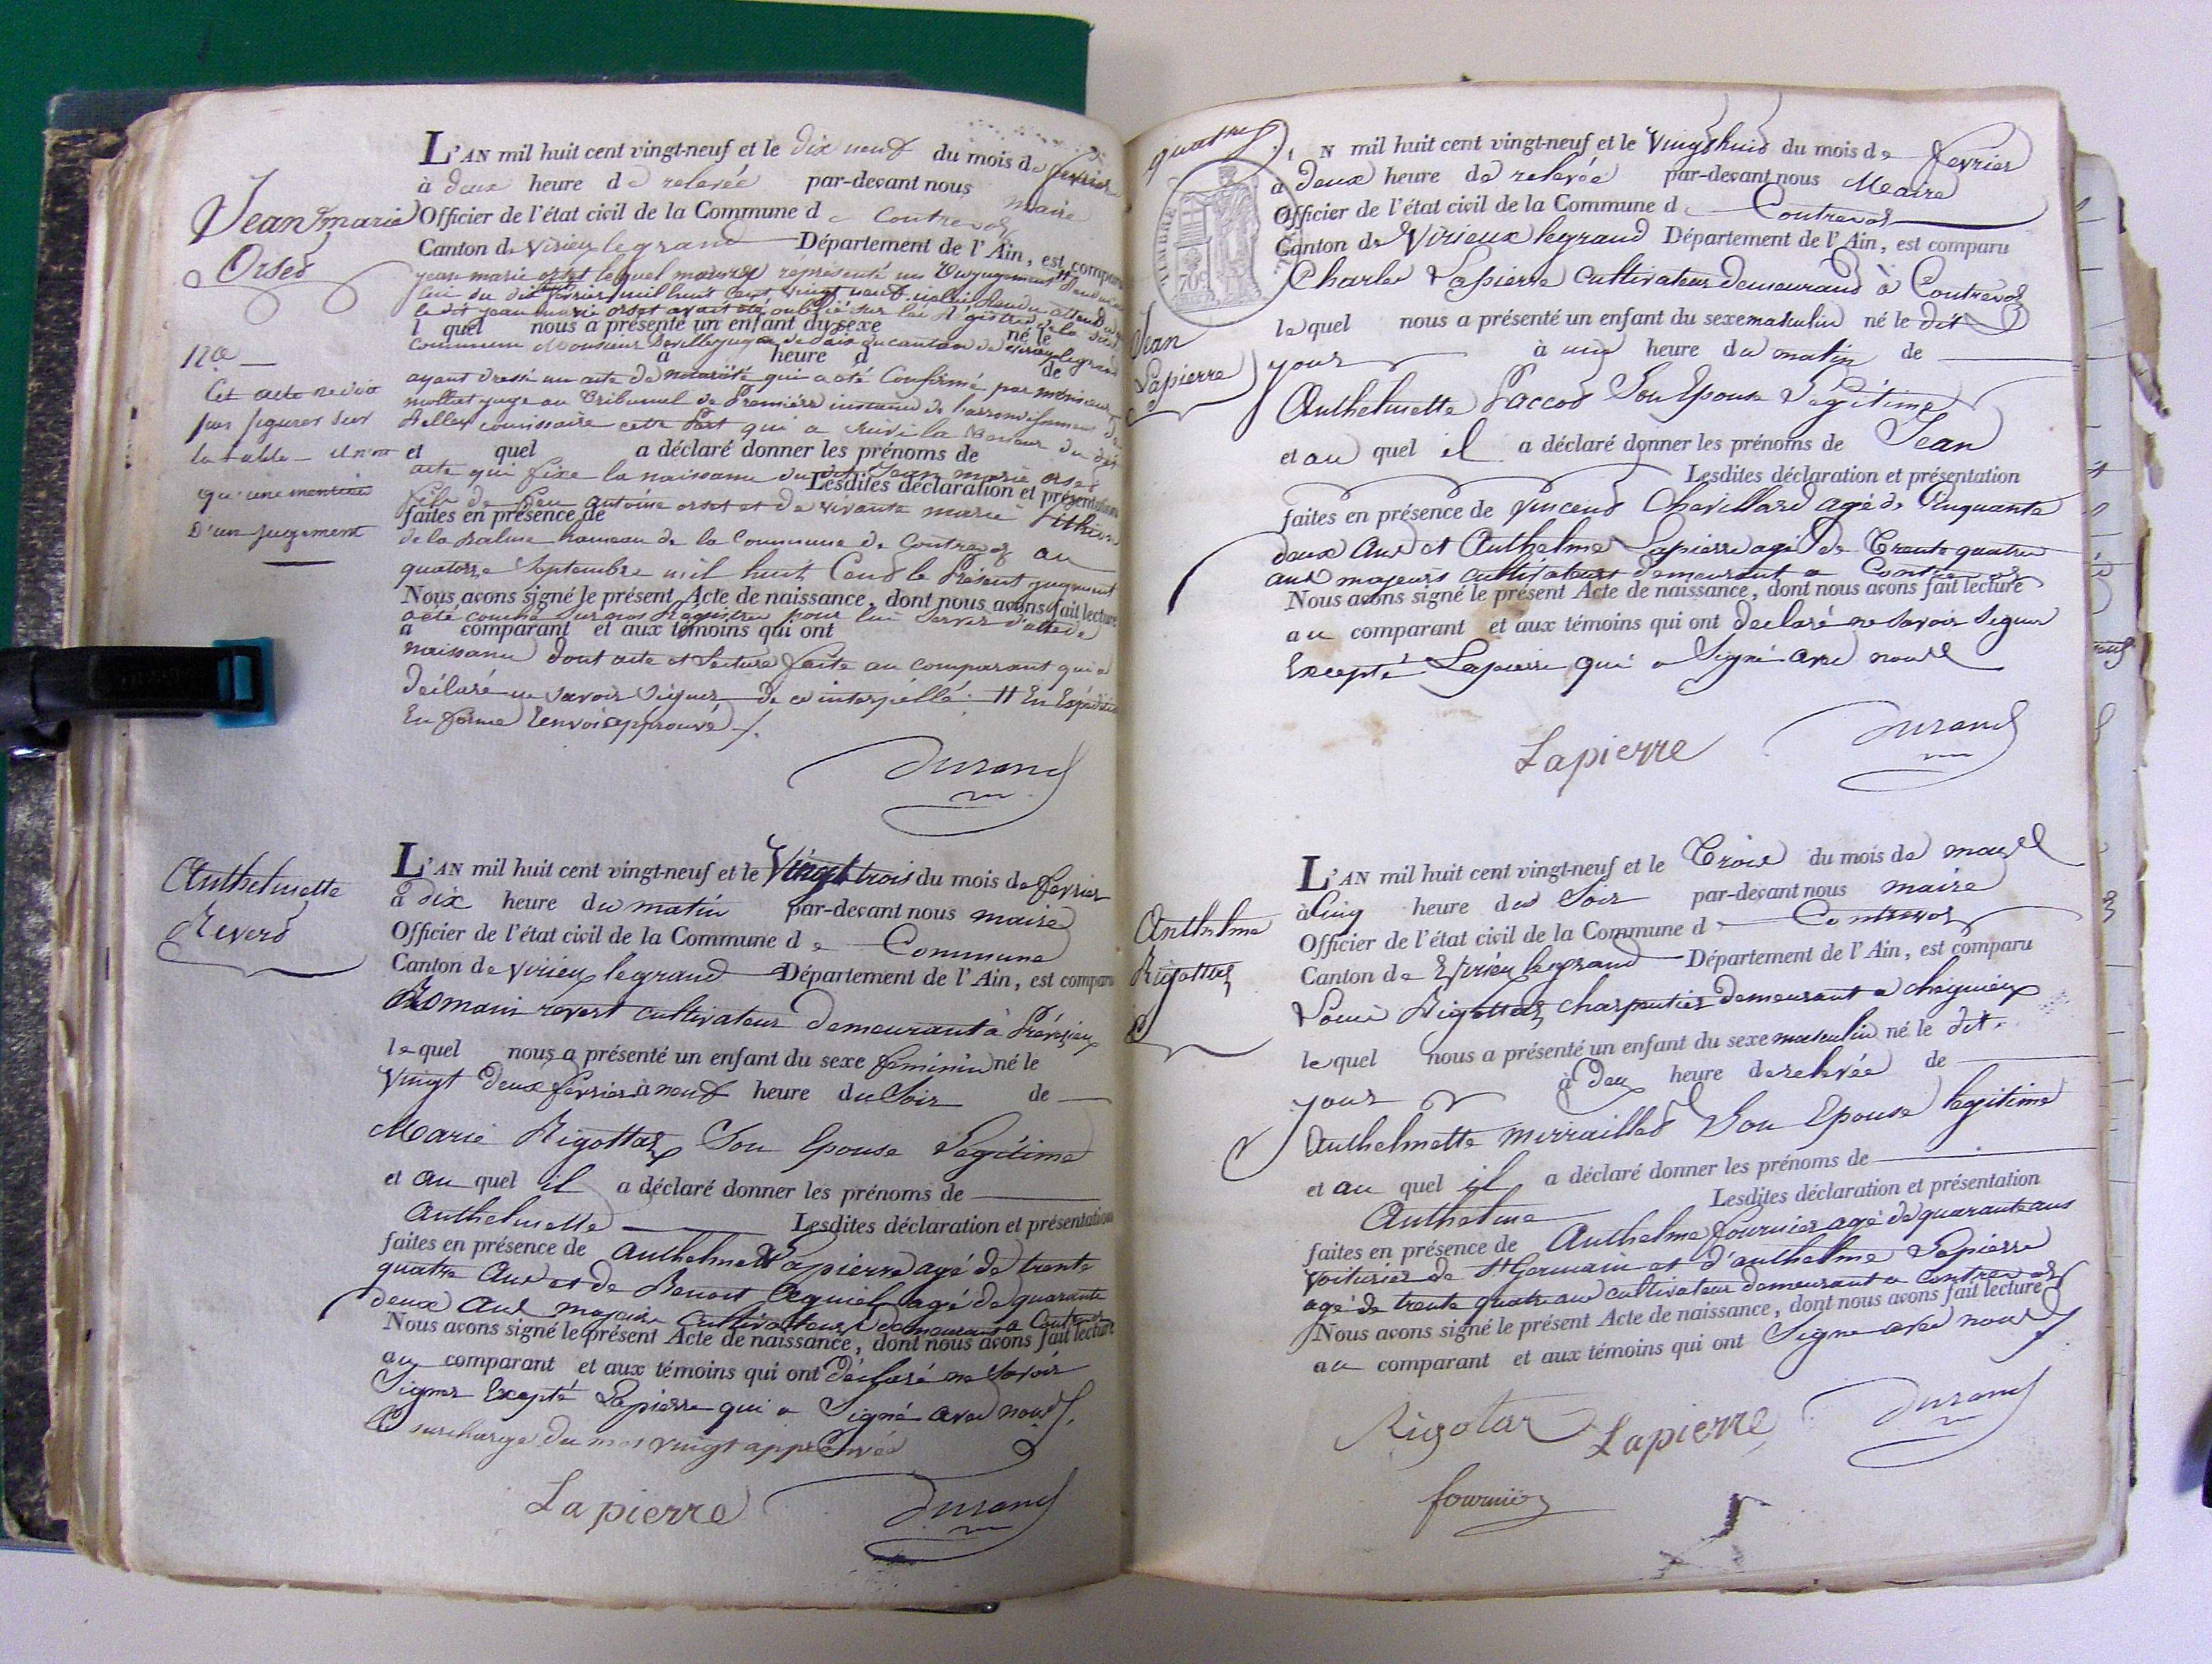 Jean marie
Orset
Na
Cet acte ne doit
pas figurer sur
la table
qu'une mention
D'un jugement
L'AN mil huit cent vingt-neuf et le dix neuf du mois de fevrier
à deux heure de relevée par-devant nous maire
Officier de l'état civil de la Commune de Contrevoz
Canton de Virieu legrand Département de l'Ain, est comparu
jean marie orset lequel représenté un jugement
lui du dix fevrier mil huit Cent vingt neuf
le dit jean marie orset avait été oublié sur les Régistres de la dite
l quel nous a présenté un enfant du sexe né le
commune Monsieur juge de paix du canton de virieu legrand
à heure d de
ayant dressé un acte de qui a été Confirmé par monsieur
mollet juge au Tribunal de Première instance de l'arrondissement de
Belley cette part qui a suivi la teneur du dit
et quel a déclaré donner les prénoms de
acte qui fixe la naissance du dit Jean marie orset
Lesdites déclaration et présentation
fils de feu antoine orset et de vivante marie
faites en présence de
de la Balme hameau de la Commune de Contrevoz au
quatorze Septembre mil huit Cent le Présent jugement
Nous avons signé le présent Acte de naissance, dont nous avons fait lecture
a été couché sur nos Régistres pour lui servir d'acte de
a comparant et aux témoins qui ont
naissance dont acte et Lecture faite au comparant qui a
déclaré ne savoir signer de ce interpellé. # En Expédition
En forme Renvoi approuvé
Durand
Anthelmette
Revert
L'AN mil huit cent vingt-neuf et le Vingt trois du mois de fevrier
à dix heure du matin par-devant nous maire
Officier de l'état civil de la Commune de Commune
Canton de virieu legrand Département de l'Ain, est comparu
Romain revert cultivateur demeurant à Préveyzieu
lequel nous a présenté un enfant du sexe feminin né le
Vingt deux fevrier à neuf heure du Soir de
Marie Rigottaz Son Epouse Legitime
et au quel il a déclaré donner les prénoms de
Anthelmette Lesdites déclaration et présentation
faites en présence de anthelme Lapierre agé de trente
quatre Ans et de Benoit agé de quarante
deux Ans majeurs Cultivateurs demeurant a Contrevoz
Nous avons signé le présent Acte de naissance, dont nous avons fait lecture
au comparant et aux témoins qui ont déclaré ne Savoir
Signer Excepté Lapierre qui a Signé avec nous
surcharge du mot vingt approuvée
Lapierre Durand
quatre
TIMBRE
70c
Jean
Lapierre
N mil huit cent vingt-neuf et le Vingt huit du mois de fevrier
à deux heure de relevée par-devant nous Maire
Officier de l'état civil de la Commune de Contrevoz
Canton de Virieux legrand Département de l'Ain, est comparu
Charle Lapierre cultivateur demeurant à Contrevoz
lequel nous a présenté un enfant du sexe masculin né le dit
jour à une heure du matin de
Anthelmette Paccot Son Epouse Légitime
et au quel il a déclaré donner les prénoms de Jean
Lesdites déclaration et présentation
faites en présence de Vincent Chevillard agé de Cinquante
deux Ans et Anthelme Lapierre agé de Trente quatre
ans majeurs cultivateurs demeurant a Contrevoz
Nous avons signé le présent Acte de naissance, dont nous avons fait lecture
au comparant et aux témoins qui ont declaré ne savoir signer
Excepté Lapierre qui a Signé avec nous
Lapierre Durand
Anthelme
Rigottaz
L'AN mil huit cent vingt-neuf et le Trois du mois de mars
à Cinq heure du Soir par-devant nous maire
Officier de l'état civil de la Commune de Contrevoz
Canton de Virieu legrand Département de l'Ain, est comparu
Louis Rigottaz charpentier demeurant a cheignieux
lequel nous a présenté un enfant du sexe masculin né le dit
jour à deux heure de relevée de
Anthelmette Mirraillet Son Epouse legitime
et au quel il a déclaré donner les prénoms de
Anthelme Lesdites déclaration et présentation
faites en présence de Anthelme fournier agé de quarante ans
voiturier de St Germain et d'anthelme Lapierre
agé de trente quatre ans cultivateur demeurant a Contrevoz
Nous avons signé le présent Acte de naissance, dont nous avons fait lecture
au comparant et aux témoins qui ont Signe avec nous
Rigotaz Lapierre Durand
fournier